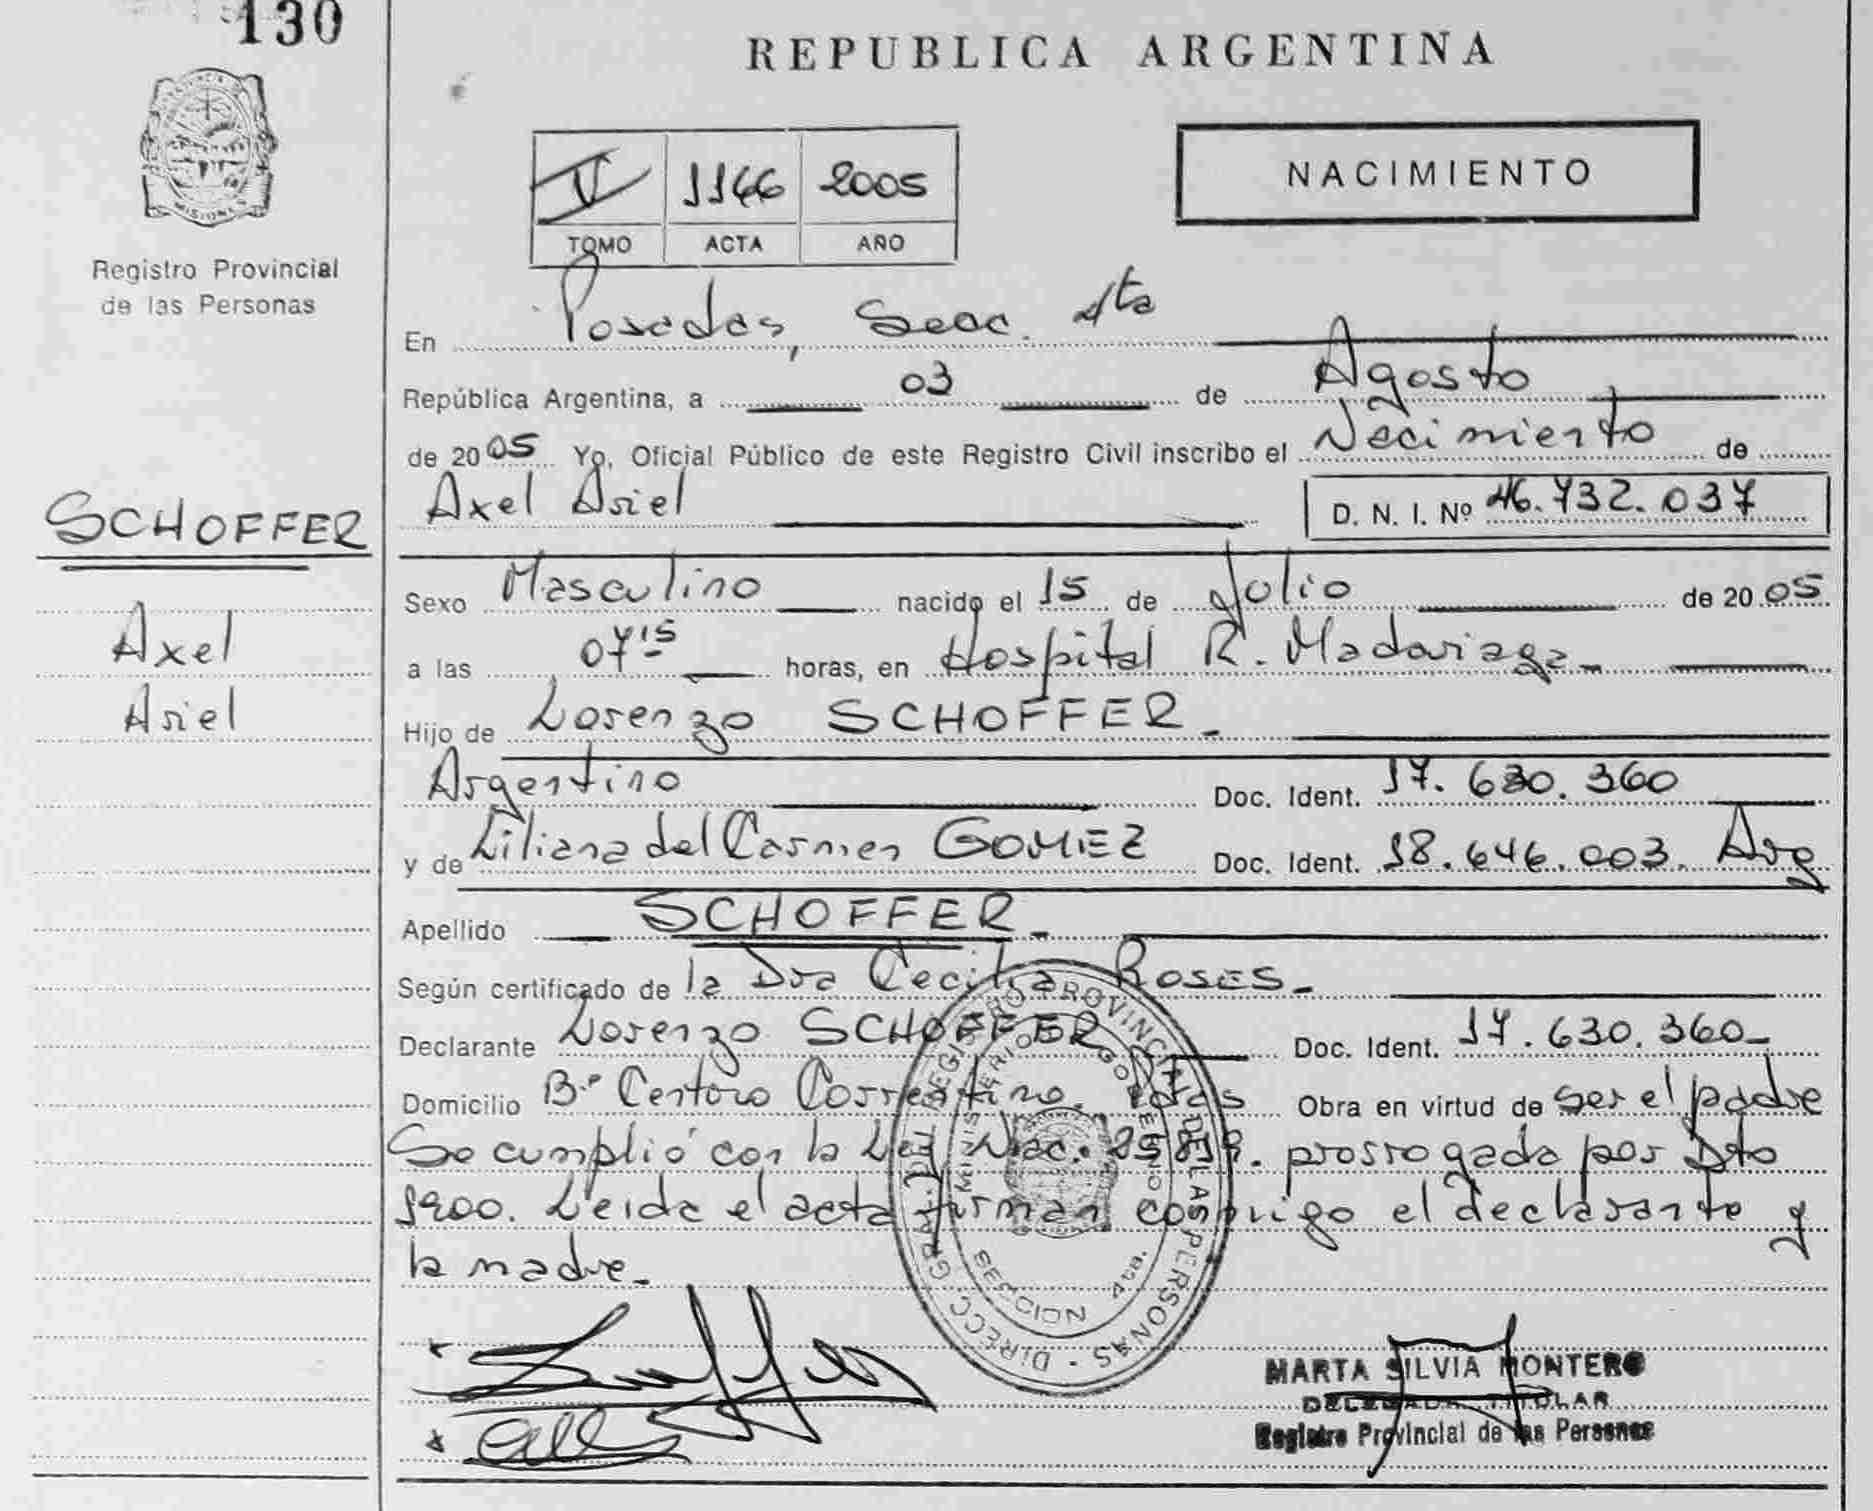 130
REPUBLICA ARGENTINA
PROVINCIA
MISIONES
Registro Provincial
de las Personas
V 1166 2005
TOMO ACTA AÑO
NACIMIENTO
En Posadas, Secc. 4ta
República Argentina, a 03 de Agosto
de 2005 Yo, Oficial Público de este Registro Civil inscribo el Nacimiento de
Axel Ariel D. N. I. Nº 46.732.037
SCHOFFER
Axel
Ariel
Sexo Masculino nacido el 15 de Julio de 2005
a las 07 15 horas, en Hospital R. Madariaga-
Hijo de Lorenzo SCHOFFER-
Argentino Doc. Ident. 17.630.360
y de Liliana del Carmen GOMEZ Doc. Ident. 18.646.003. Arg
Apellido SCHOFFER-
Según certificado de la Dra Cecilia ROSES-
Declarante Lorenzo SCHOFFER Doc. Ident. 17.630.360-
Domicilio Bº Centro Correntino, Pdas Obra en virtud de ser el padre
Se cumplió con la Ley Nac. 25819. prorrogada por Dto
1900. Leida el acta firman conmigo el declarante y
la madre-
DIRECC. GRAL. DEL REGISTRO PROVINCIAL DE LAS PERSONAS
MINISTERIO GOBIERNO
SECCION 4ta.
MARTA SILVIA MONTERO
DELEGADA TITULAR
Registro Provincial de las Personas